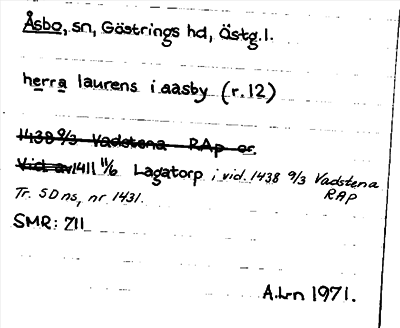 Åsbo, sn, Göstrings hd, Östg.l.
herra laurens i aasby (r.12)
1438 9/3 Vadstena RAp or.
Vid. av 1411 11/6 Lagatorp i vid. 1438 9/3 Vadstena
RAP
Tr. SDns, nr 1431.
SMR: 711
A.L-n 1971.